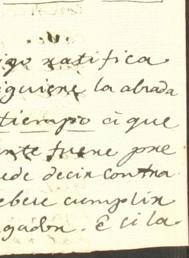 igo ratifica
iguiene la abrada
tiempo ci que
nte fuene pre
ude decir contra
ebue cumplir
gador. E si la